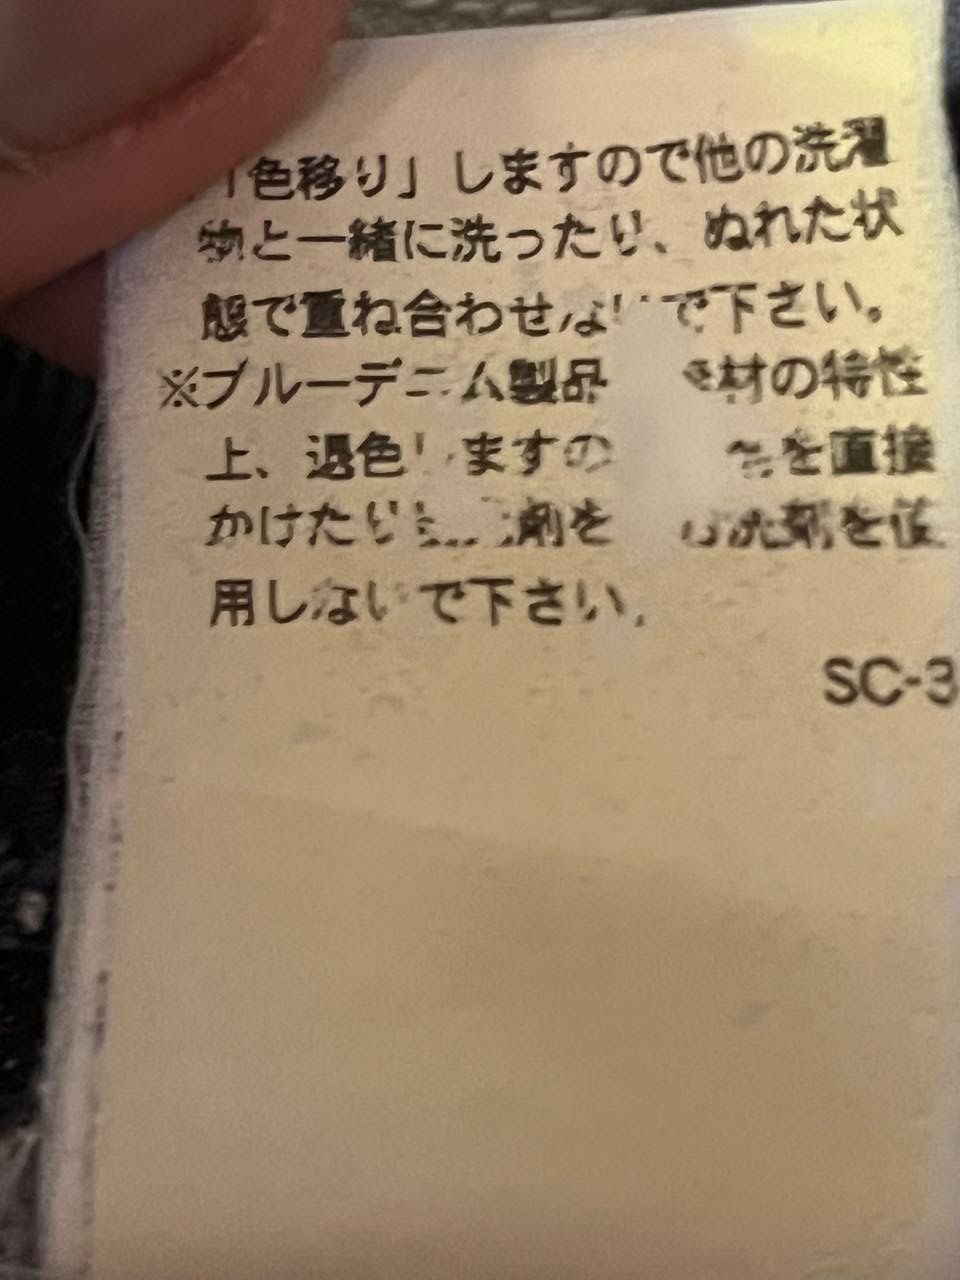 「色移り」しますので他の洗濯
物と一緒に洗ったり、ぬれた状
態で重ね合わせないで下さい。
※ブルーデニム製品 素材の特性
上、退色しますの を直接
かけたり 剤を 洗剤を使
用しないで下さい。
SC-3